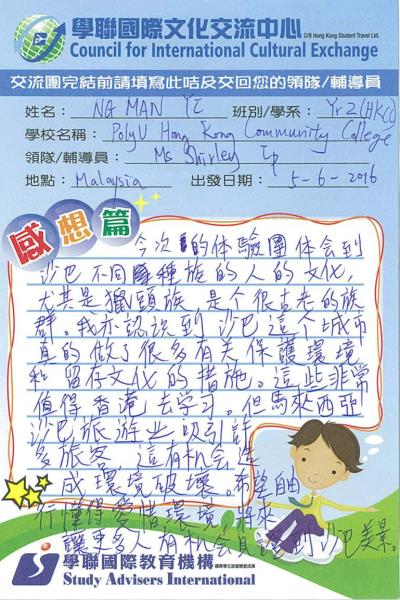 學聯國際文化交流中心 O/B Hong Kong Student Travel Ltd.
Council for International Cultural Exchange
交流團完結前請填寫此咭及交回您的領隊/輔導員
姓名： NG MAN YI 班別/學系： Yr 2 (HKCC)
學校名稱： PolyU Hong Kong Community College
領隊/輔導員： Ms Shirley Ip
地點： Malaysia 出發日期： 5-6-2016
感想篇
今次的体驗團体会到
沙巴不同種族的人的文化,
尤其是獵頭族,是个很古老的族
群。我亦認識到沙巴這个城市
真的做了很多有关保護環境
和留存文化的措施。這些非常
值得香港去学习。但馬來西亞
沙巴旅游业吸引許
多旅客 這有机会造
成環境破壞。希望自由
行懂得愛惜環境,將來
讓更多人有机会見識到沙巴美景。
學聯國際教育機構
Study Advisers International